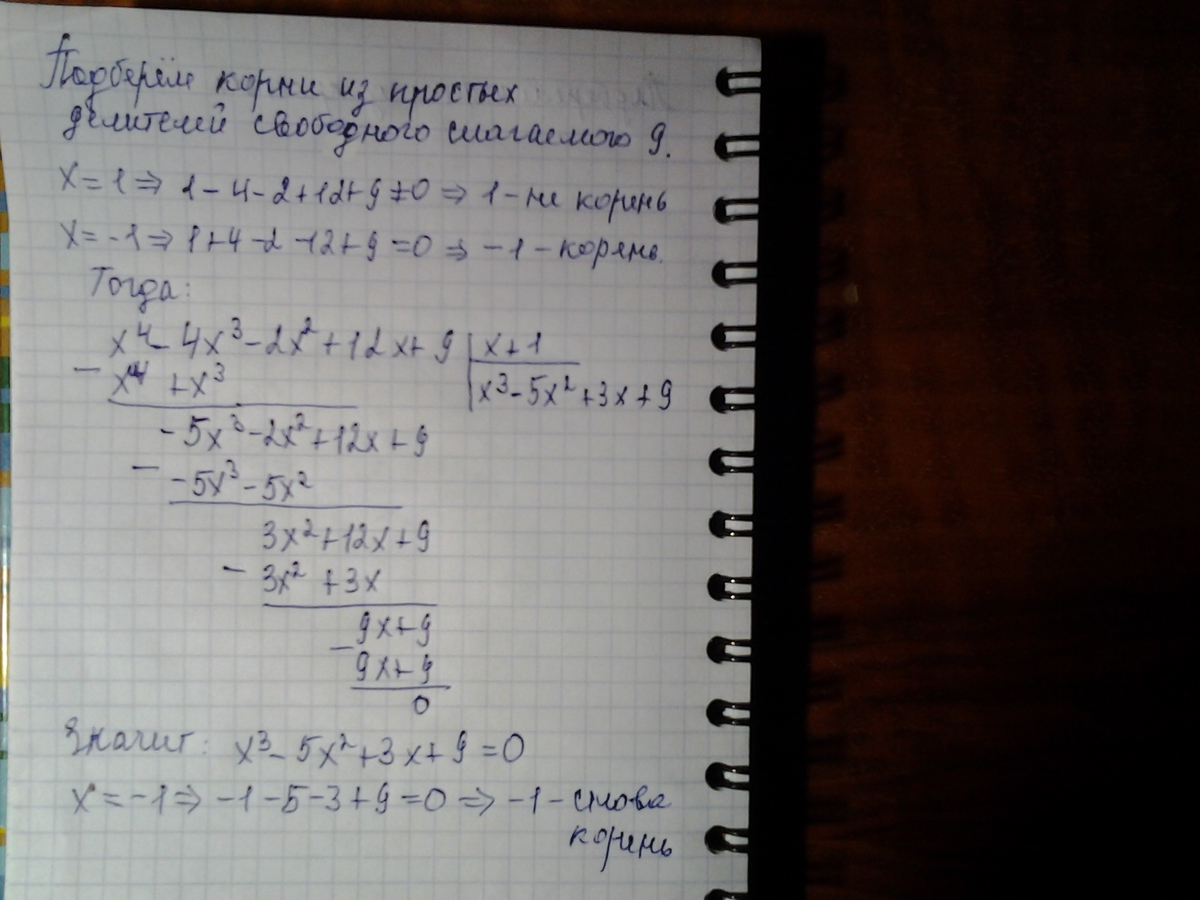 Подберём корни из простых
делителей свободного слагаемого 9.
x=1 ⇒ 1-4-2+12+9≠0 ⇒ 1-не корень
x=-1 ⇒ 1+4-2-12+9=0 ⇒ -1-корень.
Тогда:
x⁴-4x³-2x²+12x+9 | x+1
- x⁴ +x³ | x³-5x²+3x+9
-5x³-2x²+12x+9
- -5x³-5x²
3x²+12x+9
- 3x² +3x
9x+9
- 9x+9
0
Значит: x³-5x²+3x+9=0
x=-1 ⇒ -1-5-3+9=0 ⇒ -1-снова
корень